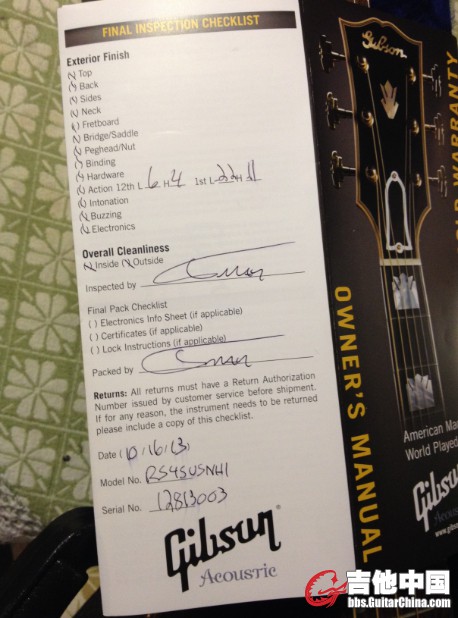 FINAL INSPECTION CHECKLIST
Exterior Finish
Top
Back
Sides
Neck
Fretboard
Bridge/Saddle
Peghead/Nut
Binding
Hardware
Action 12th L 6 H4 1st L
Intonation
Buzzing
Electronics
Overall Cleanliness
Inside Outside
Inspected by
Final Pack Checklist
( ) Electronics Info Sheet (if applicable)
( ) Certificates (if applicable)
( ) Lock Instructions (if applicable)
Packed by
Returns: All returns must have a Return Authorization
Number issued by customer service before shipment.
If for any reason, the instrument needs to be returned
please include a copy of this checklist.
Date (10/16/13)
Model No. RS4SUSNH1
Serial No. 12813003
Gibson
Acoustic
Gibson
OWNER'S MANUAL
WARRANTY
American Ma
World Played
Gibson
Acoustic
www.gibson
吉他中国
bbs.GuitarChina.com